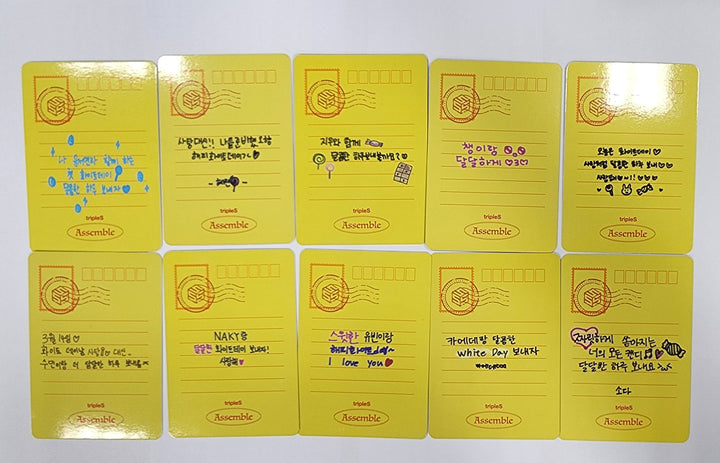 나 윤서연과 함께 하는
첫 화이트데이
달콤한 하루 보내자
tripleS
Assemble
사탕 대신!! 나를 준비했오용
해피 화이트데이~
tripleS
Assemble
지우와 함께
달콤한 하루 보내볼까요?
tripleS
Assemble
챙이랑
달달하게
tripleS
Assemble
오늘은 화이트데이
사탕처럼 달콤한 하루 보내
tripleS
Assemble
3월 14일
화이트 데이날 사탕은 대신..
수연이랑 더 달달한 하루 보내용
tripleS
Assemble
NAKY랑
달달한 화이트데이 보내자!
사랑해
tripleS
Assemble
스윗한 유빈이랑
해피화이트day~
I love you
tripleS
Assemble
카에데랑 달콤한
White Day 보내자
tripleS
Assemble
짜릿하게 쏟아지는
너의 모든 캔디
달달한 하루 보내요
소다
tripleS
Assemble